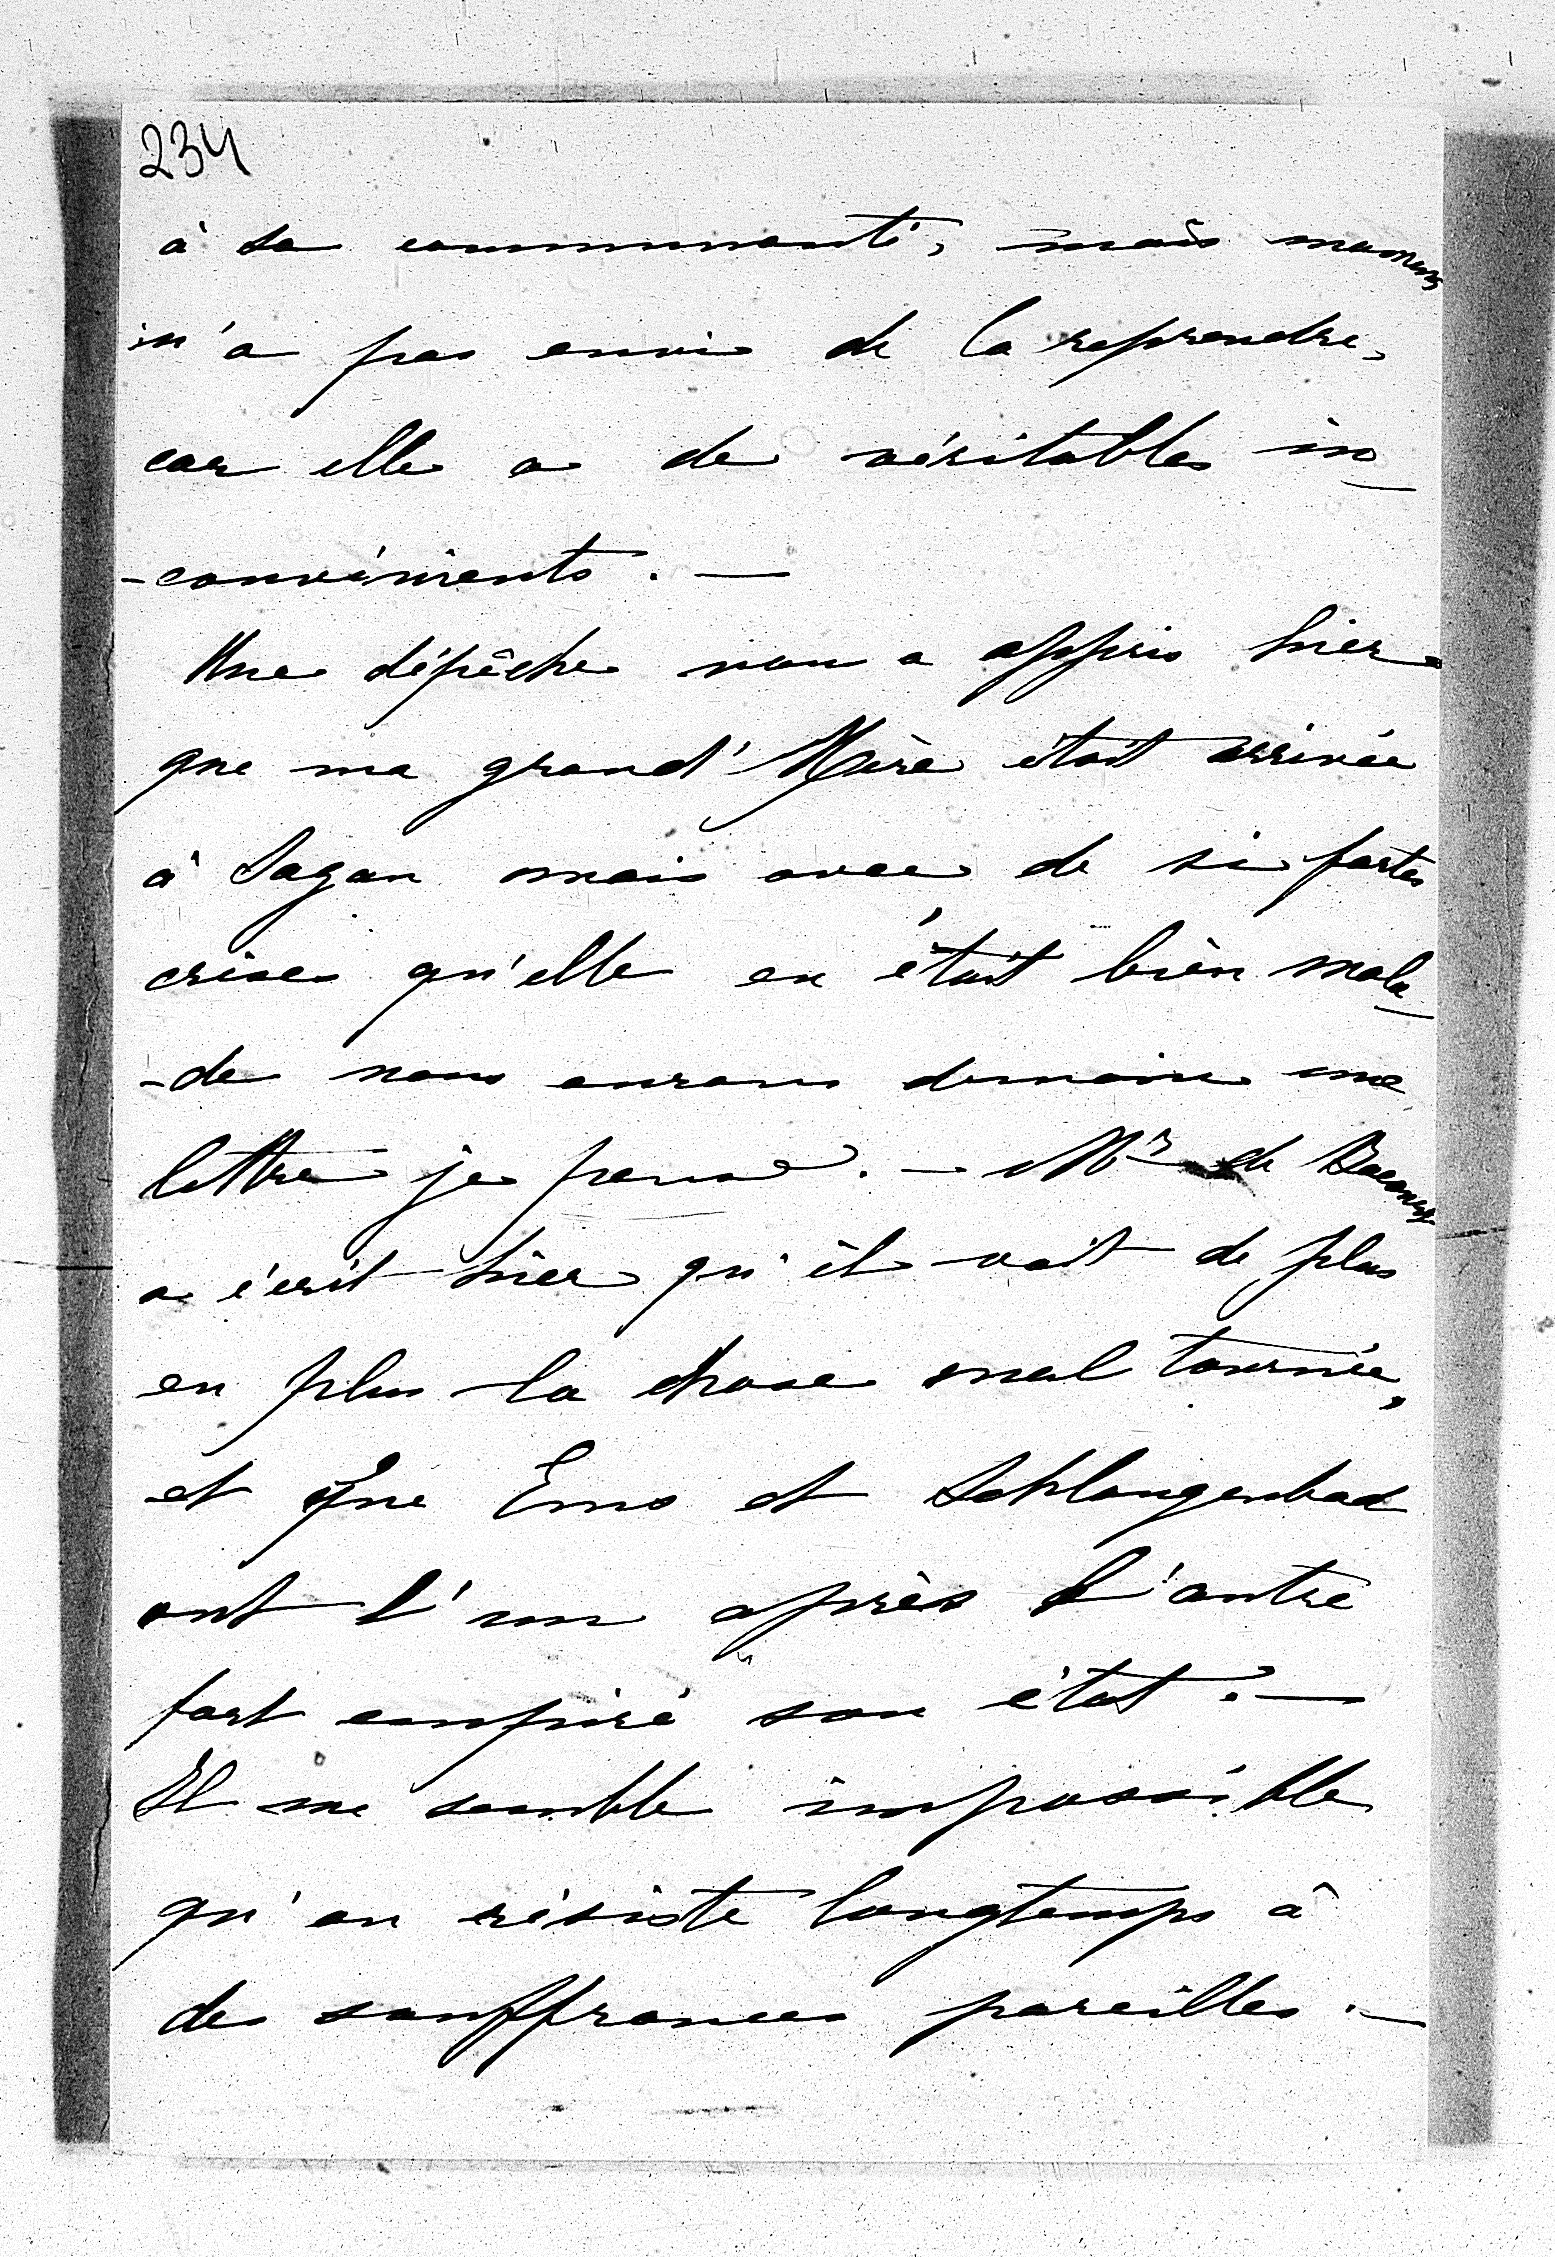 234
à sa communauté, mais maman
n'a pas envie de la reprendre,
car elle a de véritables in
-convénients. —
Une dépêche nous a appris hier
que ma grand' Mère était arrivée
à Sagan mais avec de si fortes
crises qu'elle en était bien mala
-de nous aurons demain une
lettre je pense. — Mr de Bacourt
a écrit hier qu'il voit de plus
en plus la chose mal tournée,
et que Ems et Schlangenbad
ont l'un après l'autre
fort empiré son état. —
Il me semble impossible
qu'on résiste longtemps à
des souffrances pareilles. —